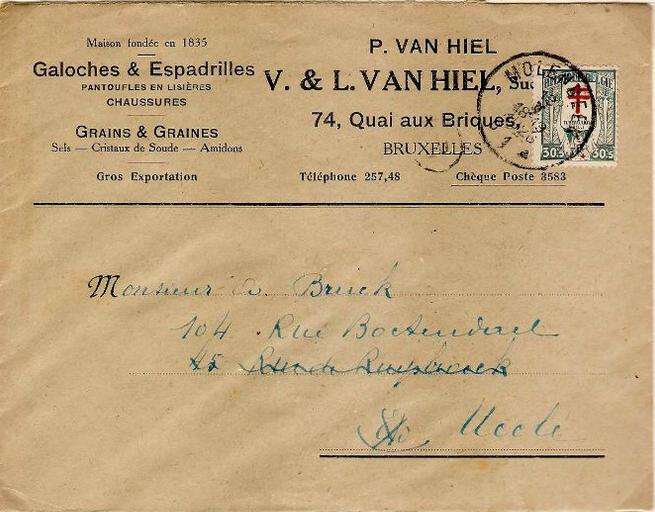 Maison fondée en 1835
Galoches & Espadrilles
PANTOUFLES EN LISIÈRES
CHAUSSURES
GRAINS & GRAINES
Sels — Cristaux de Soude — Amidons
Gros Exportation
P. VAN HIEL
V. & L. VAN HIEL, Suc
74, Quai aux Briques,
BRUXELLES
Téléphone 257,48
Chèque Poste 3583
30.5 30.5
Monsieur Brick
104 Rue
45 Rue
Uccle